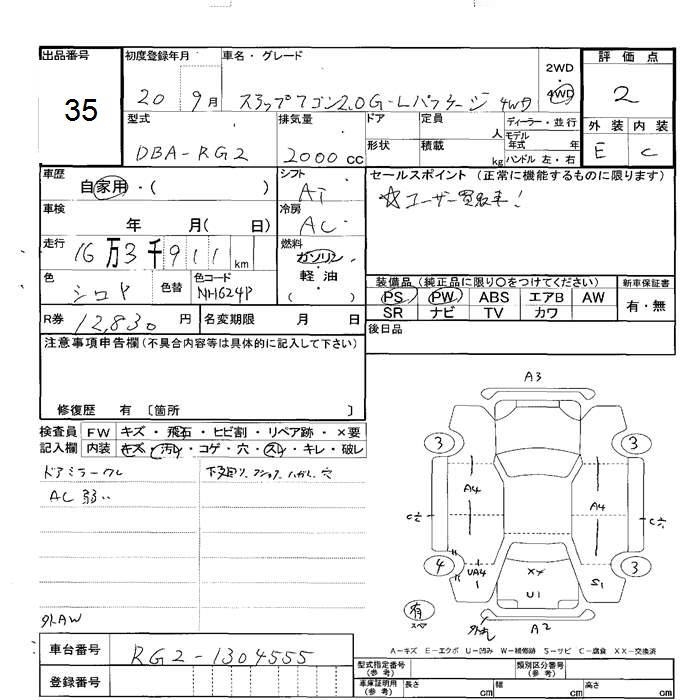 出品番号
35
初度登録年月
20 9月
車名・グレード
ステップワゴン2.0G-Lパッケージ 4WD
2WD
・
4WD
評価点
2
外装 内装
E C
型式
DBA-RG2
排気量
2000cc
ドア
形状
定員 人
積載 kg
ディーラー・並行
モデル
年式 年
ハンドル 左・右
車歴
自家用・( )
シフト
AT
セールスポイント (正常に機能するものに限ります)
☆ユーザー買取車!
車検
年 月( 日)
冷房
AC
走行
16万3千911km
燃料
ガソリン
・
軽油
( )
色
シロP
色替
色コード
NH624P
装備品 (純正品に限り○をつけてください)
新車保証書
PS PW ABS エアB AW
SR ナビ TV カワ
有・無
R券
12,830円
名変期限 月 日
後日品
注意事項申告欄(不具合内容等は具体的に記入して下さい)
修復歴 有 〔箇所 〕
検査員
記入欄
FW キズ・飛石・ヒビ割・リペア跡・×要
内装 キズ・汚レ・コゲ・穴・スレ・キレ・破レ
ドアミラーワレ
AC弱い
外AW
A3
3 3
A4 A4
4 3
UA4 XX S1
U1
有
スペア
A2
A-キズ E-エクボ U-凹み W-補修跡 S-サビ C-腐食 XX-交換済
車台番号
RG2-1304555
登録番号
型式指定番号
(参考)
類別区分番号
(参考)
車庫証明用
(参考)
長さ cm
幅 cm
高さ cm